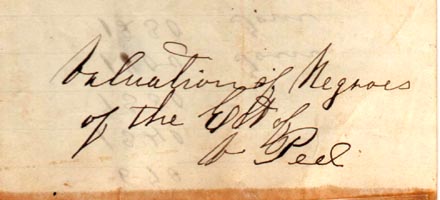 Valuation of Negroes
of the Est of
V Peel